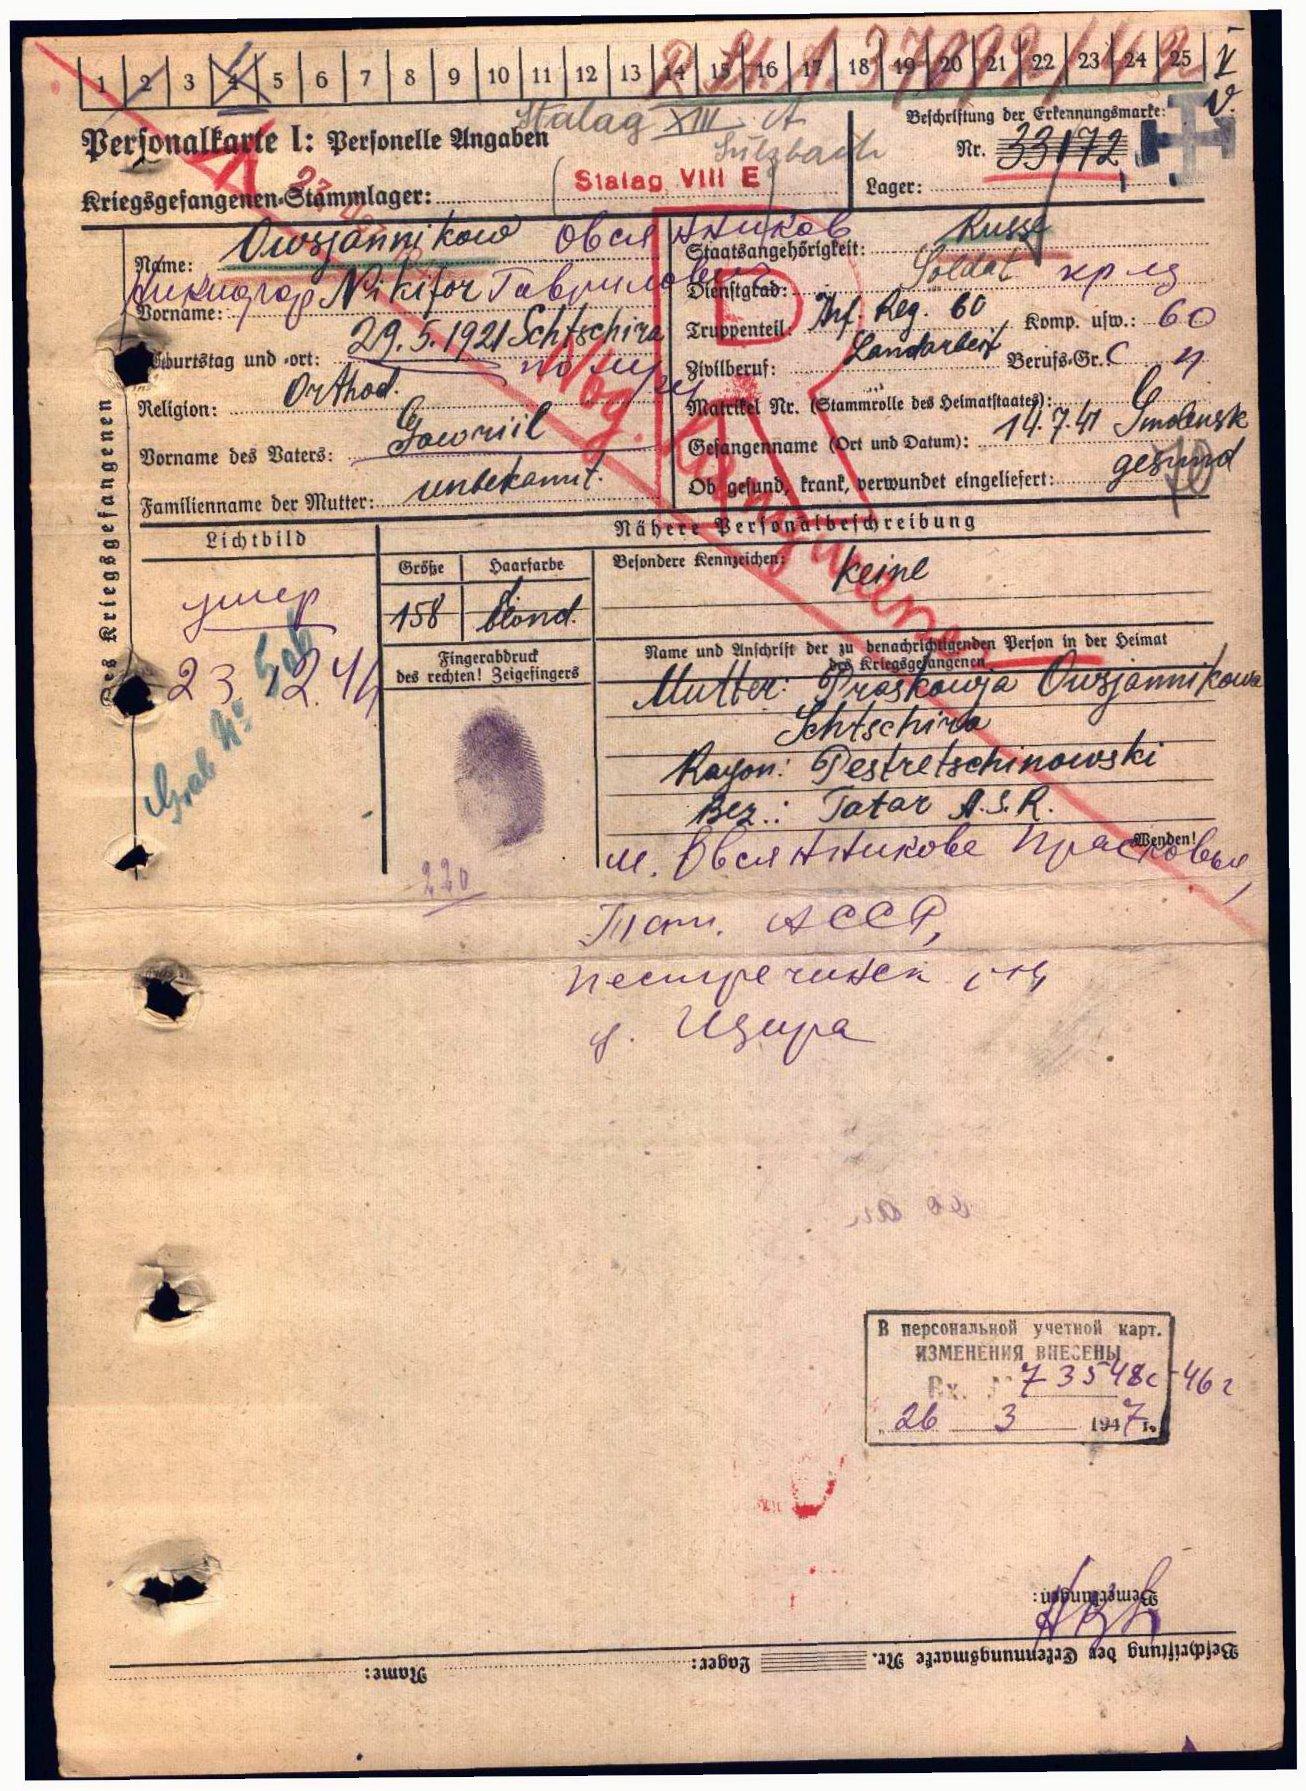 1 2 3 4 5 6 7 8 9 10 11 12 13 14 15 16 17 18 19 20 21 22 23 24 25 V
Stalag XIII A
Sulzbach
Personalkarte I: Personelle Angaben
Beschriftung der Erkennungsmarke:
Nr. 33172
Kriegsgefangenen-Stammlager: Stalag VIII E
Lager:
Des Kriegsgefangenen
Name: Owsjannikow Овсянников
Vorname: Никифор Nikifor Гаврилович
Geburtstag und -ort: 29.5.1921 Schtschira
Religion: Orthod.
Vorname des Vaters: Gawriil
Familienname der Mutter: unbekannt.
Staatsangehörigkeit: Russe
Dienstgrad: Soldat кр-ц
Truppenteil: Inf. Reg. 60 Komp. usw.: 60
Zivilberuf: Landarbeit Berufs-Gr. C
Matrikel Nr. (Stammrolle des Heimatstaates):
Gefangennahme (Ort und Datum): 14.7.41 Smolensk
Ob gesund, krank, verwundet eingeliefert: gesund
Lichtbild
умер
23. 2.44
Grab Nº
Nähere Personalbeschreibung
Größe Haarfarbe
158 blond.
Besondere Kennzeichen: keine
Fingerabdruck
des rechten! Zeigefingers
220
Name und Anschrift der zu benachrichtigenden Person in der Heimat
des Kriegsgefangenen
Mutter: Praskowja Owsjannikowa
Schtschira
Rayon: Pestretschinowski
Bez.: Tatar A.S.R.
Wenden!
м. Овсянникова Прасковья,
Тат. АССР,
Пестречинск
д. Щира
В персональной учетной карт.
ИЗМЕНЕНИЯ ВНЕСЕНЫ
Вх. № 73548с-46г
"26 3 1947г.
Bemerkungen:
Beschriftung der Erkennungsmarke Nr. Lager: Name: